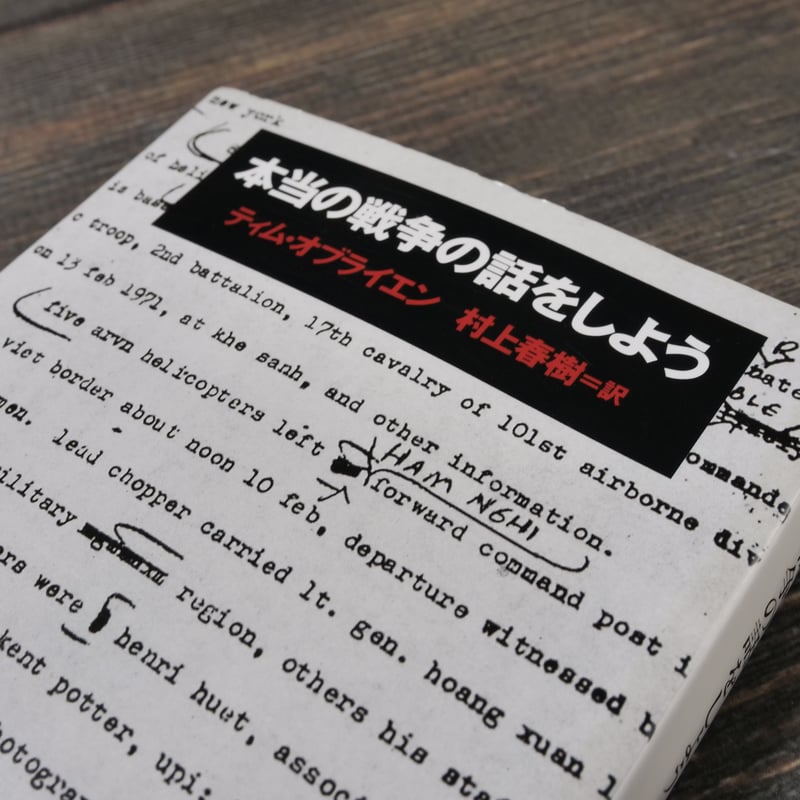 new york
of heli
is base
本当の戦争の話をしよう
ティム・オブライエン 村上春樹=訳
c troop, 2nd battalion, 17th cavalry of 101st airborne div
on 13 feb 1971, at khe sanh, and other information.
five arvn helicopters left HAM NGHI forward command post i
viet border about noon 10 feb, departure witnessed b
men. lead chopper carried lt. gen. hoang xuan l
military region, others his sta
ers were henri huet, assoc
kent potter, upi;
hotogra